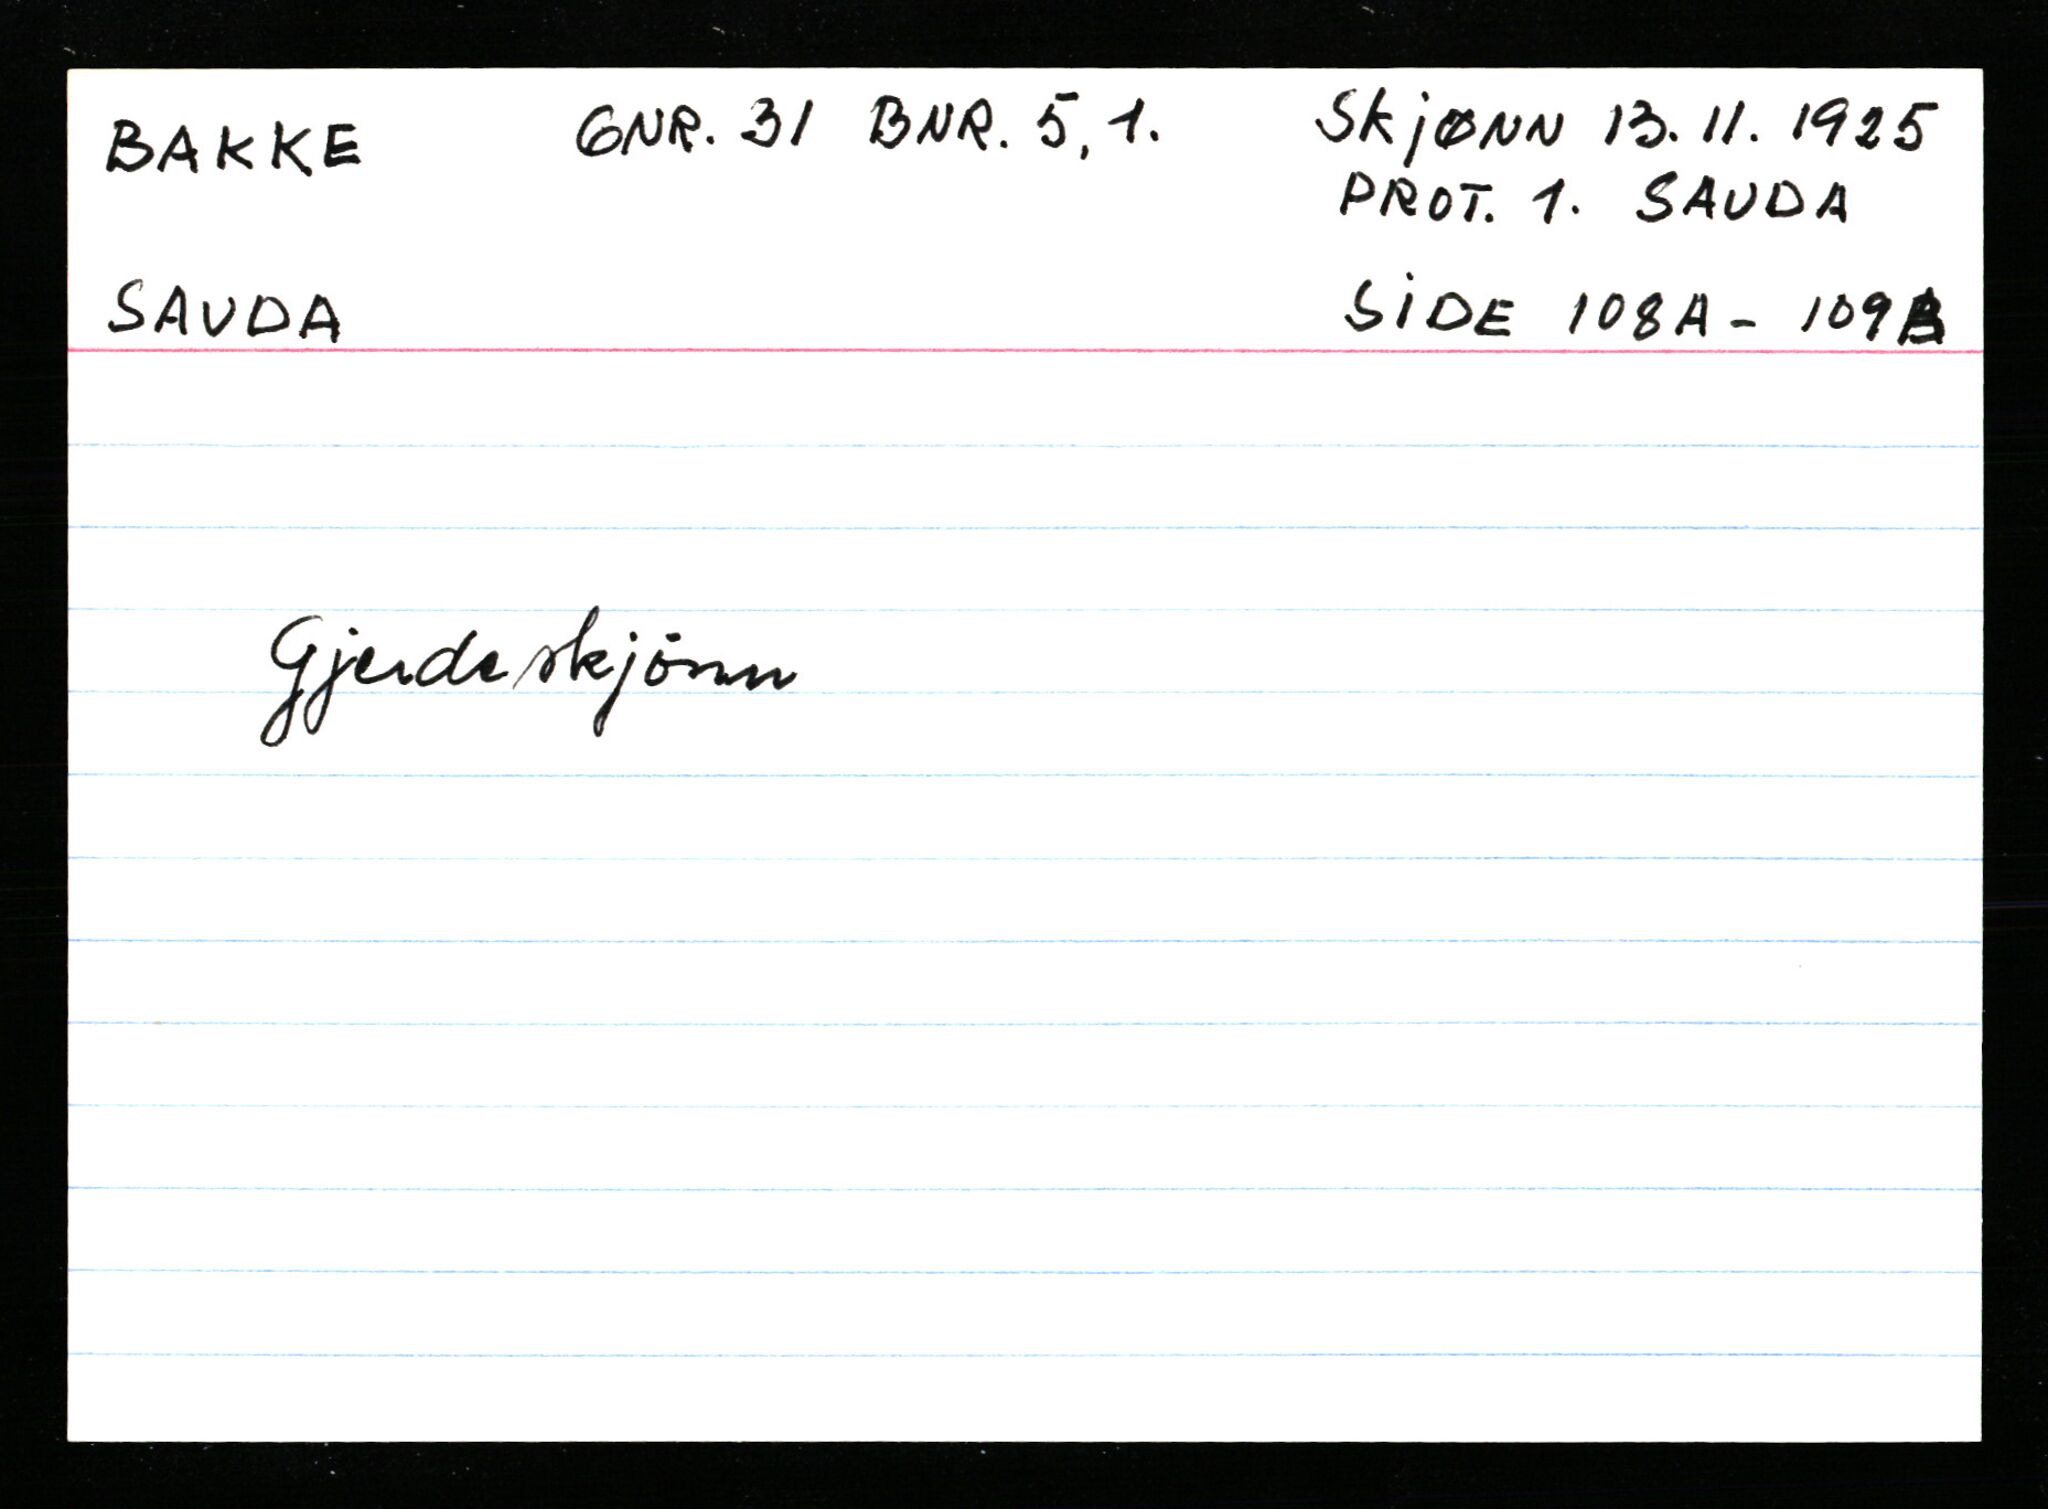 BAKKE GNR. 31 BNR. 5, 1. Skjønn 13. 11. 1925
PROT. 1. SAUDA
SAUDA SiDE 108A - 109B
Gjerdeskjönn